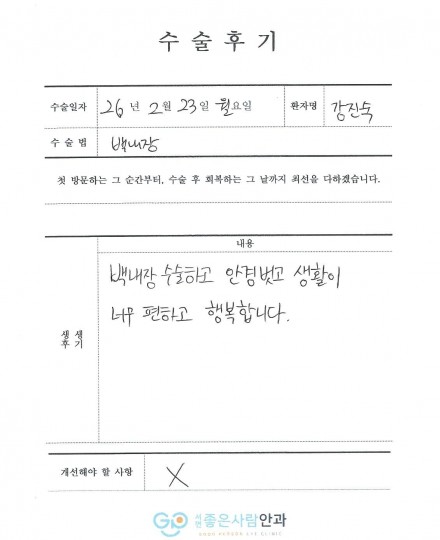 수술후기
수술일자 26년 2월 23일 월요일 환자명 강진숙
수술법 백내장
첫 방문하는 그 순간부터, 수술 후 회복하는 그 날까지 최선을 다하겠습니다.
내용
생생
후기
백내장 수술하고 안경벗고 생활이
너무 편하고 행복합니다.
개선해야 할 사항 X
서면
좋은사람안과
GOOD PERSON EYE CLINIC